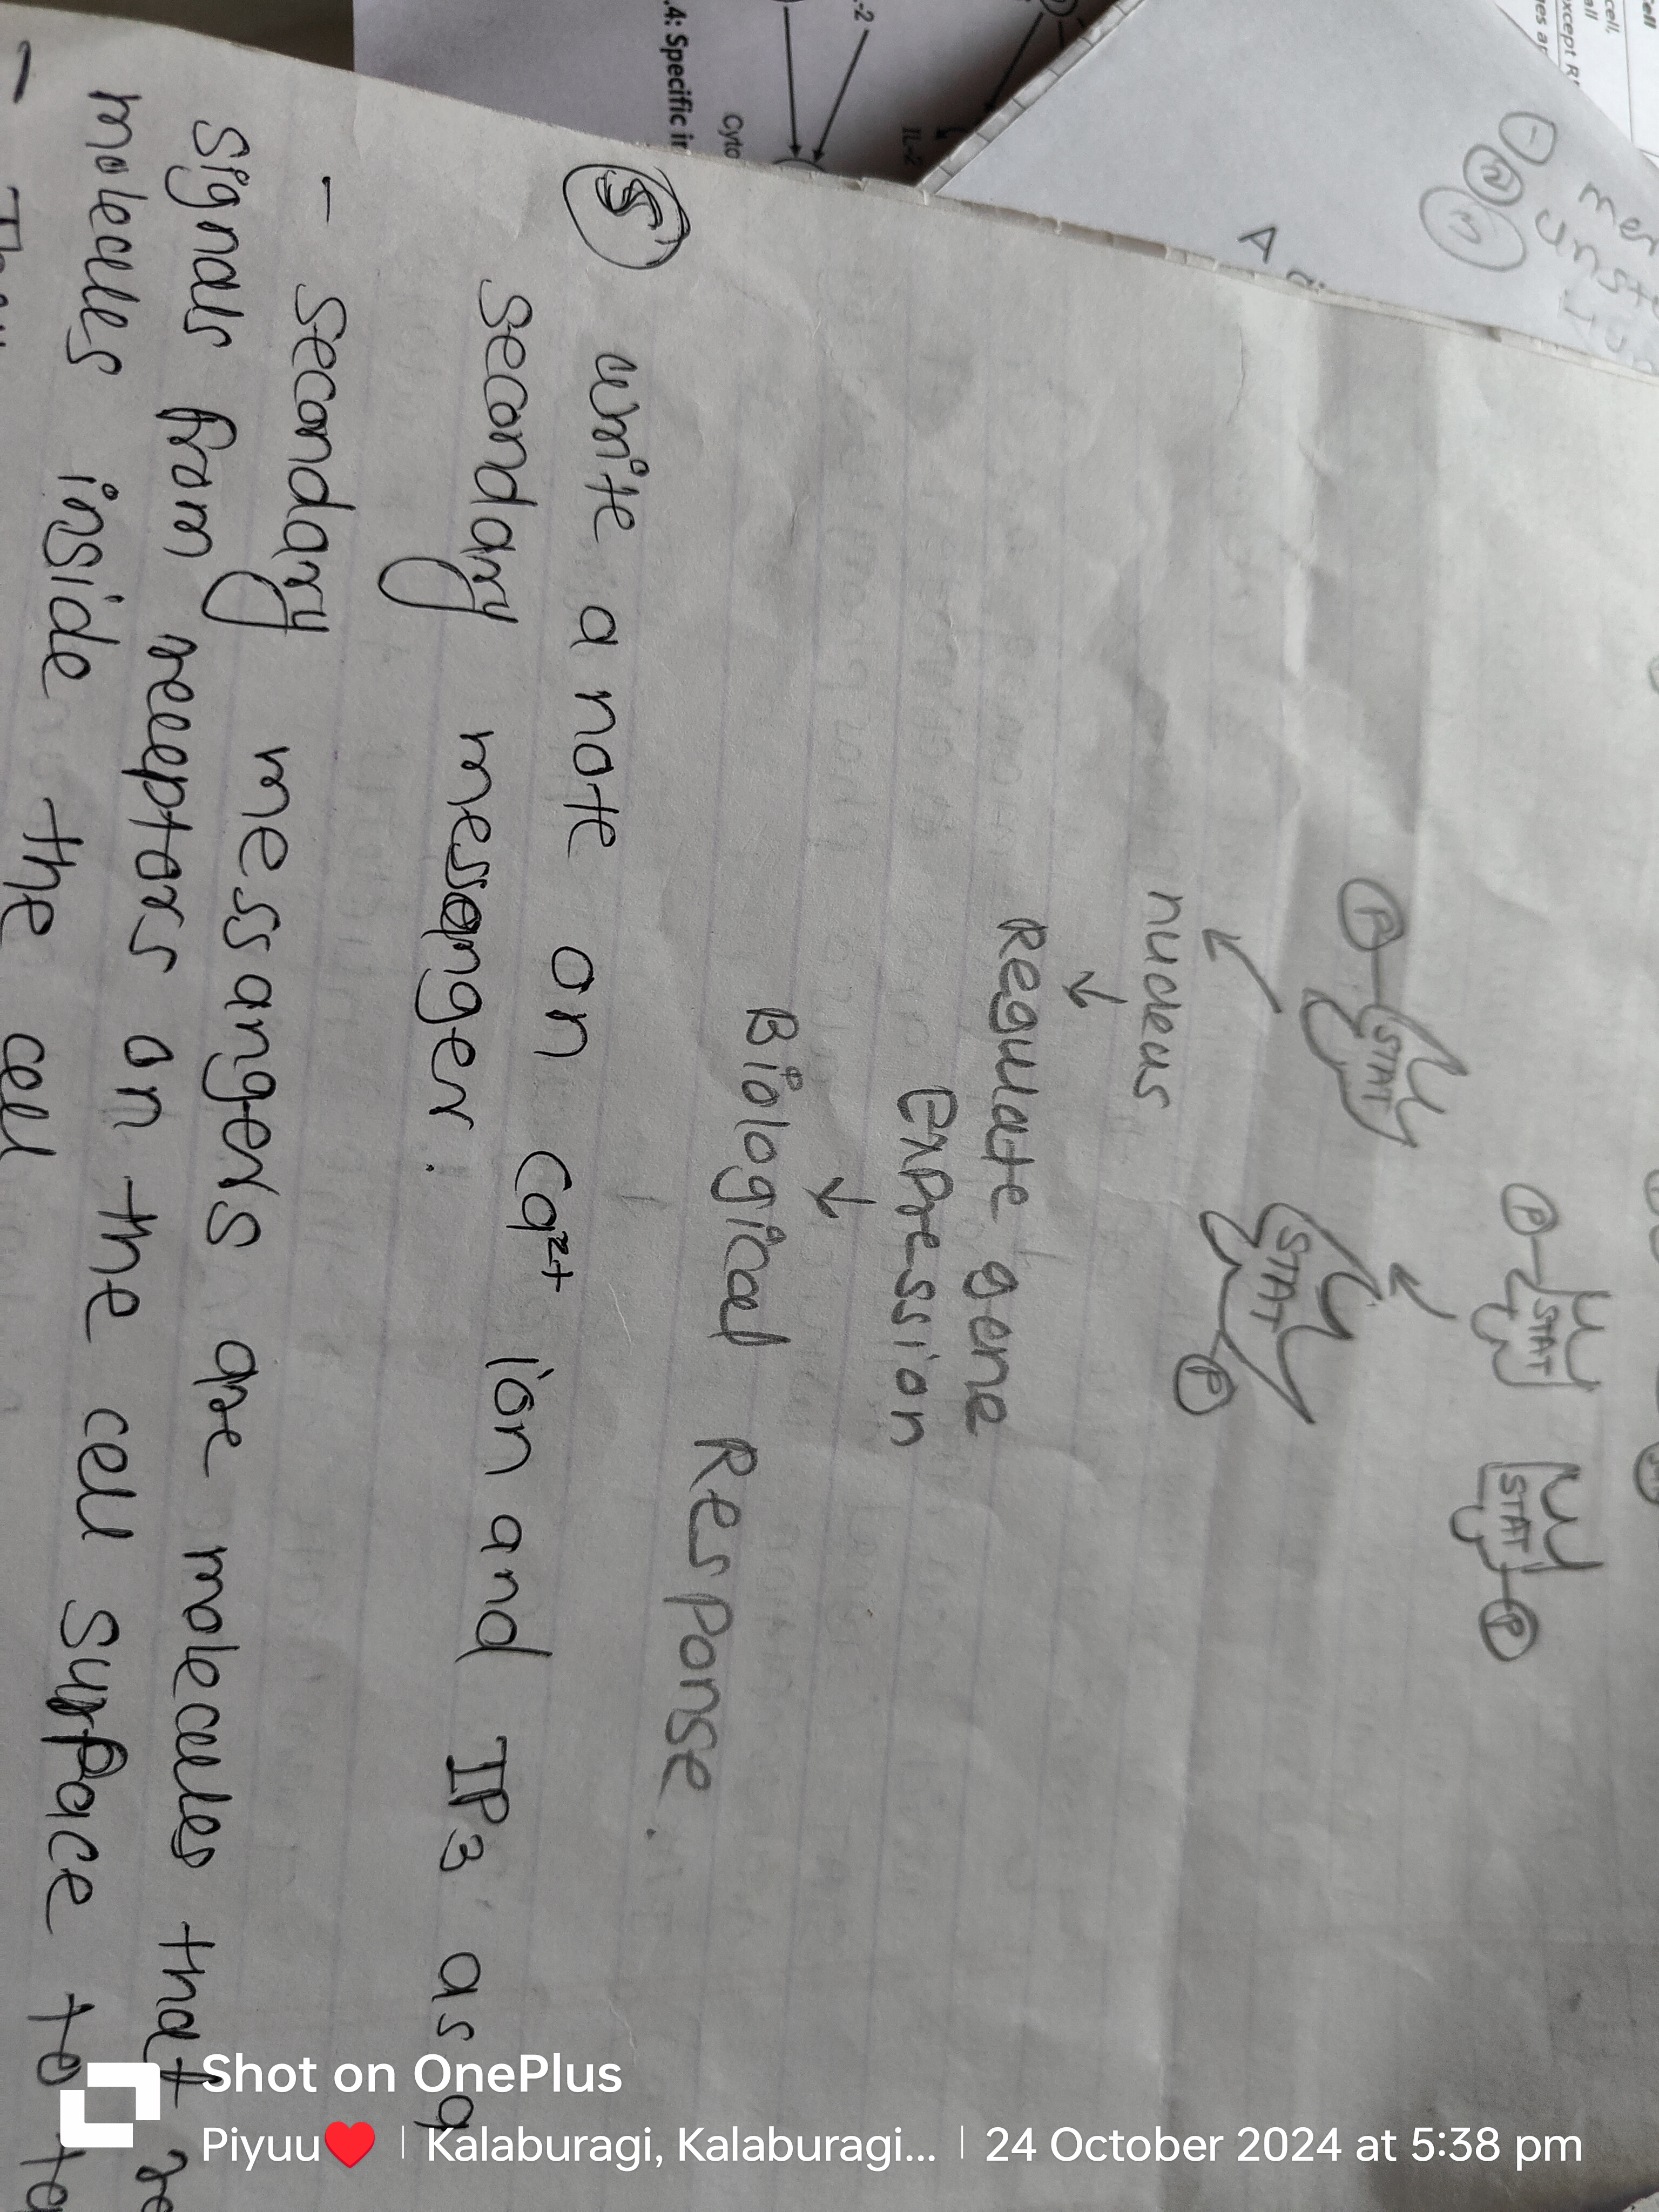 STAT
STAT
P
P
P
STAT
STAT
P
nucleus
↓
Regulate gene
Expression
↓
Biological Response.
5 write a note on Ca2+ ion and IP3 as a
secondary messenger.
- secondary messangers are molecules that
signals from receptors on the cell surface to
molecules inside the cell
.4: Specific
Cyto
IL-2
-2
except
cell,
Shot on OnePlus
Piyuu❤️ | Kalaburagi, Kalaburagi... | 24 October 2024 at 5:38 pm